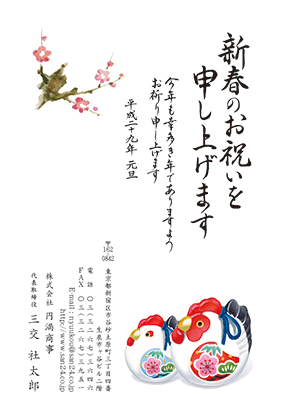 新春のお祝いを
申し上げます
今年も幸多き年でありますよう
お祈り申し上げます
平成二十九年 元旦
〒162-0842
東京都新宿区市谷砂土原町三丁目四番
生泉市ヶ谷ビル二階
電話 〇三(三二六七)三六四六
FAX 〇三(三二六七)三九五一
Email:nyukou@san24.co.jp
http://www.san24.co.jp
株式会社 円満商事
代表取締役 三交 社太郎